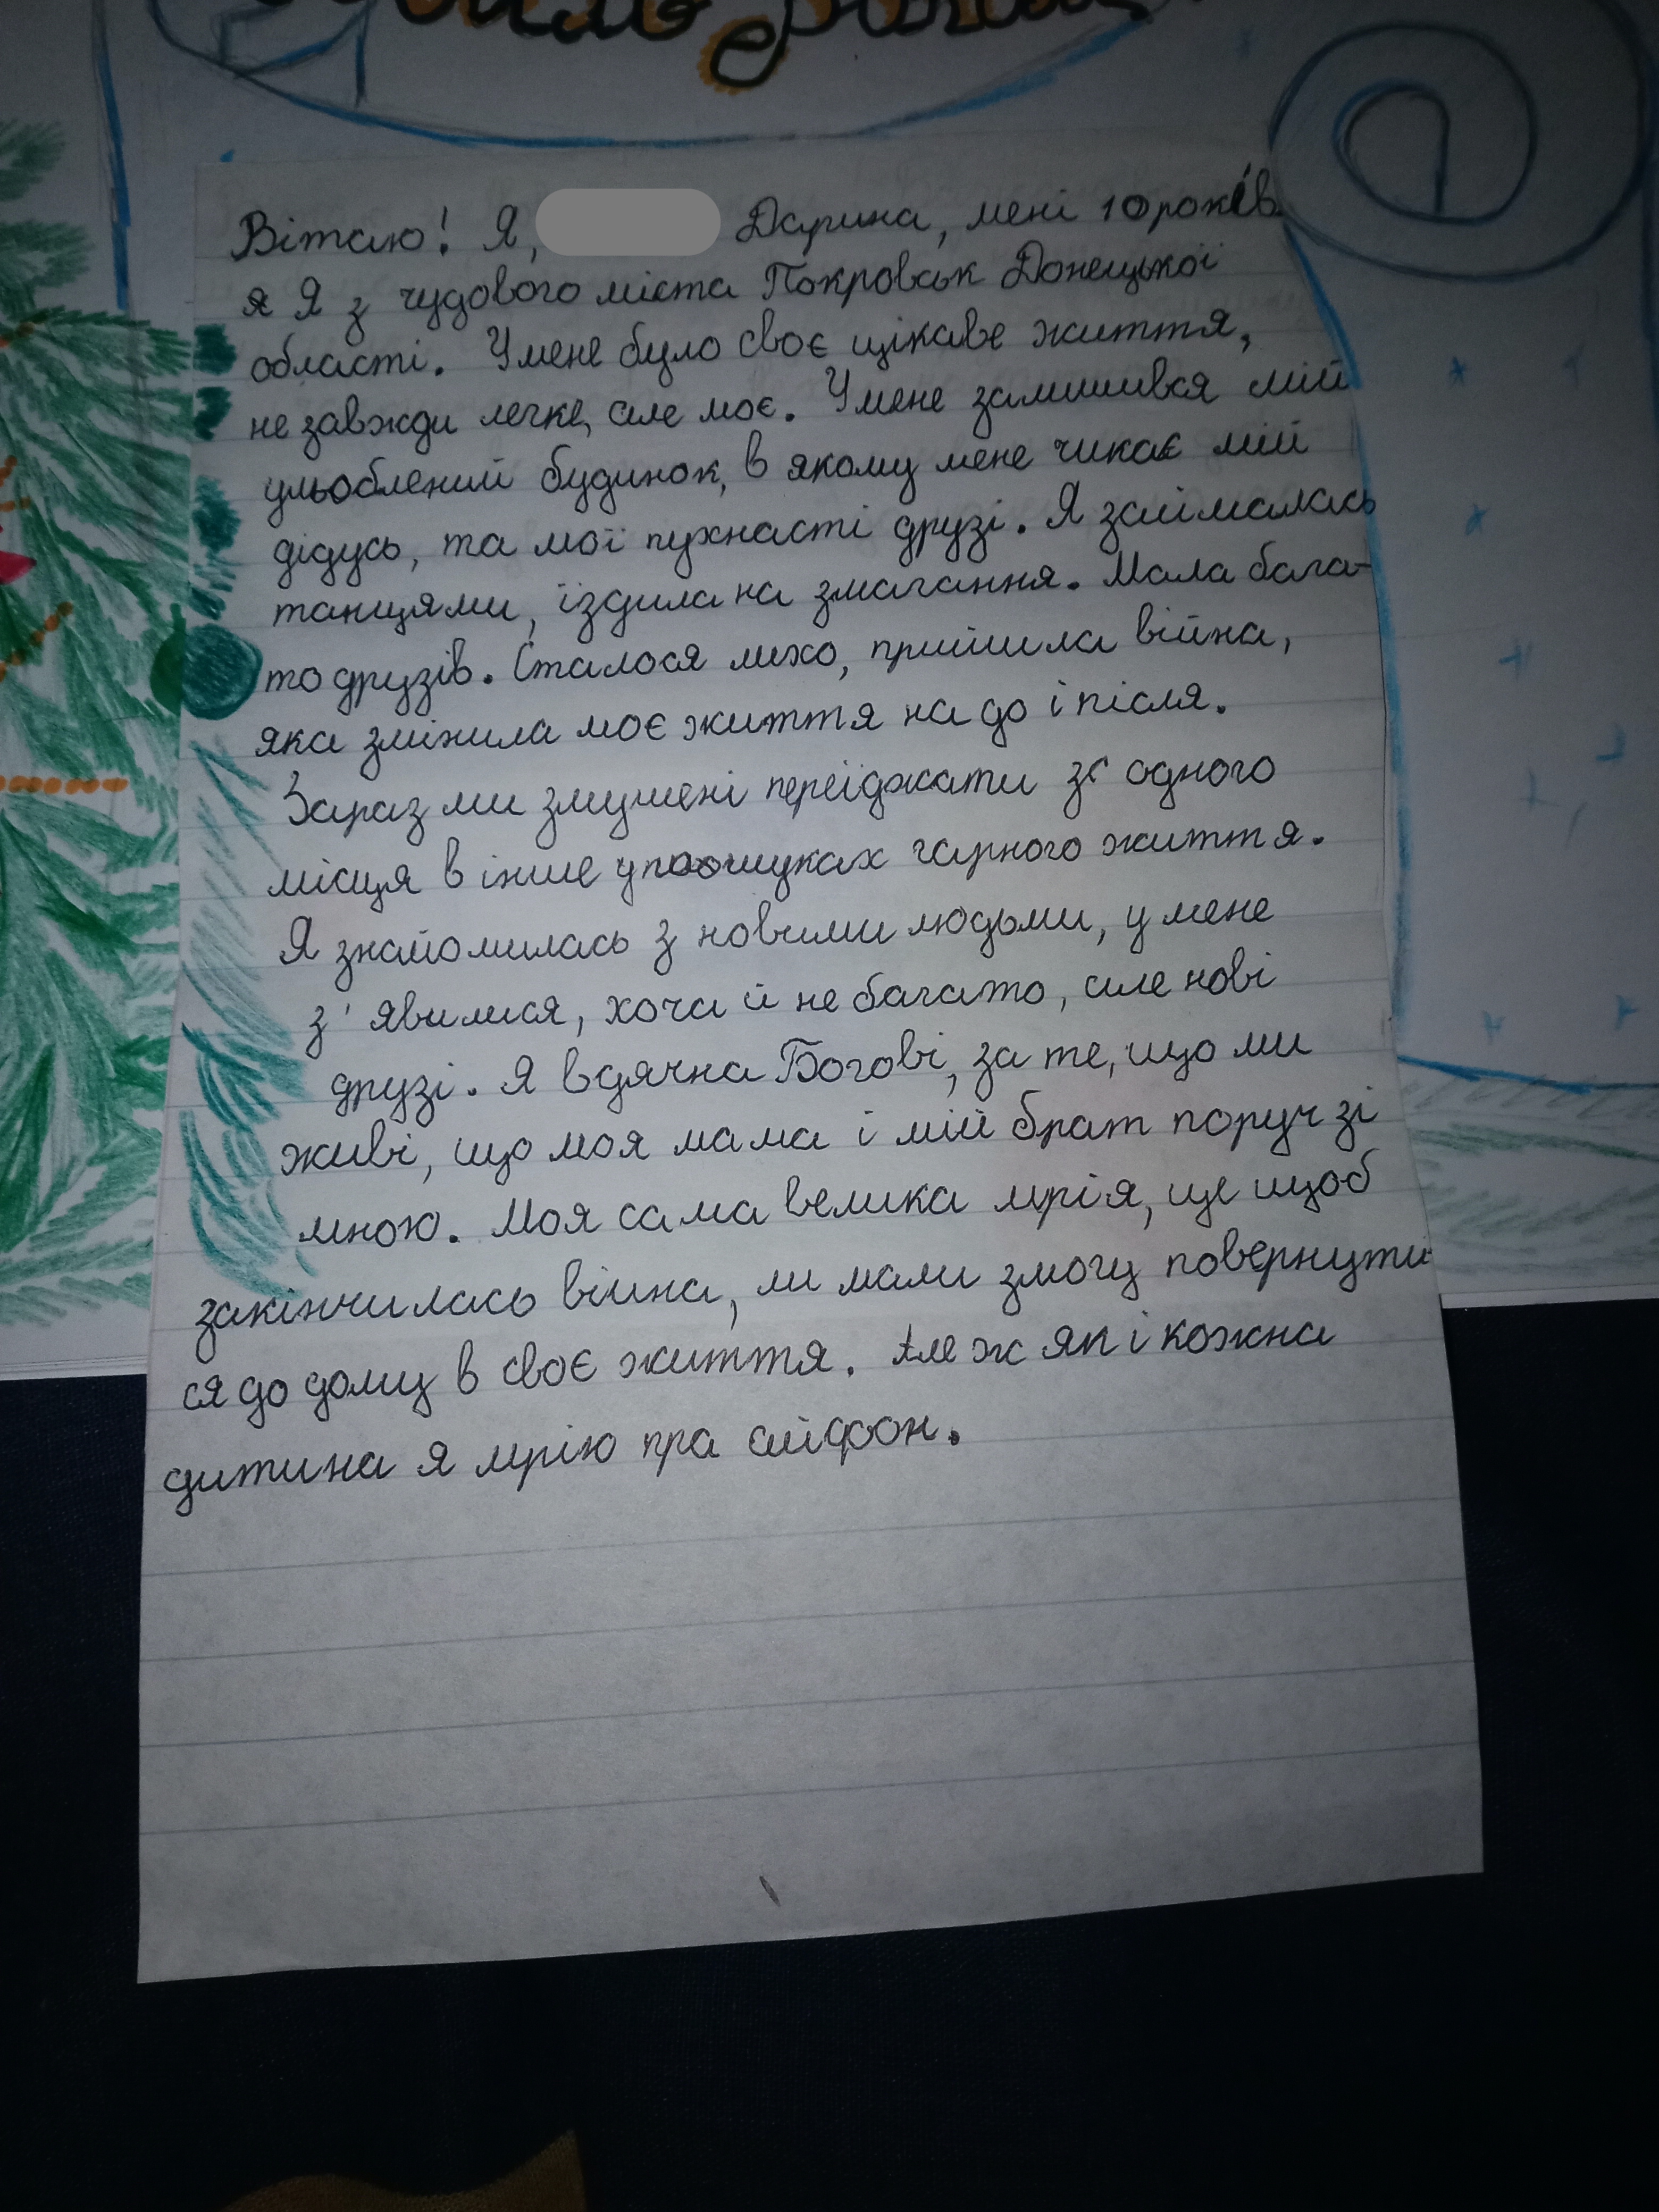 Вітаю! Я, Дарина, мені 10 років
я Я з чудового міста Покровськ Донецької
області. У мене було своє цікаве життя,
не завжди легке, але моє. У мене залишився мій
ульоблений будинок, в якому мене чикає мій
дідусь, та мої пухнасті друзі. Я займалась
танцями, їздила на змагання. Мала бага-
то друзів. Сталося лихо, прийшла війна,
яка змінила моє життя на до і після.
Зараз ми змушені переїджати зі одного
місця в інше у пошуках гарного життя.
Я знайомилась з новими людьми, у мене
з'явилися, хоча й не багато, але нові
друзі. Я вдячна Богові, за те, що ми
живі, що моя мама і мій брат поруч зі
мною. Моя сама велика мрія, це щоб
закінчилась війна, ми мали змогу повернути
ся до дому в своє життя. Але ж як і кожна
дитина я мрію пра айфон.